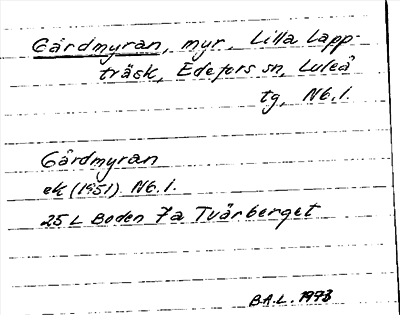 Gårdmyran, myr, Lilla Lapp-
träsk, Edefors sn, Luleå
tg, Nb.l.
Gårdmyran
ek (1951) Nb.l.
25 L Boden 7a Tvärberget
B.A.L. 1973